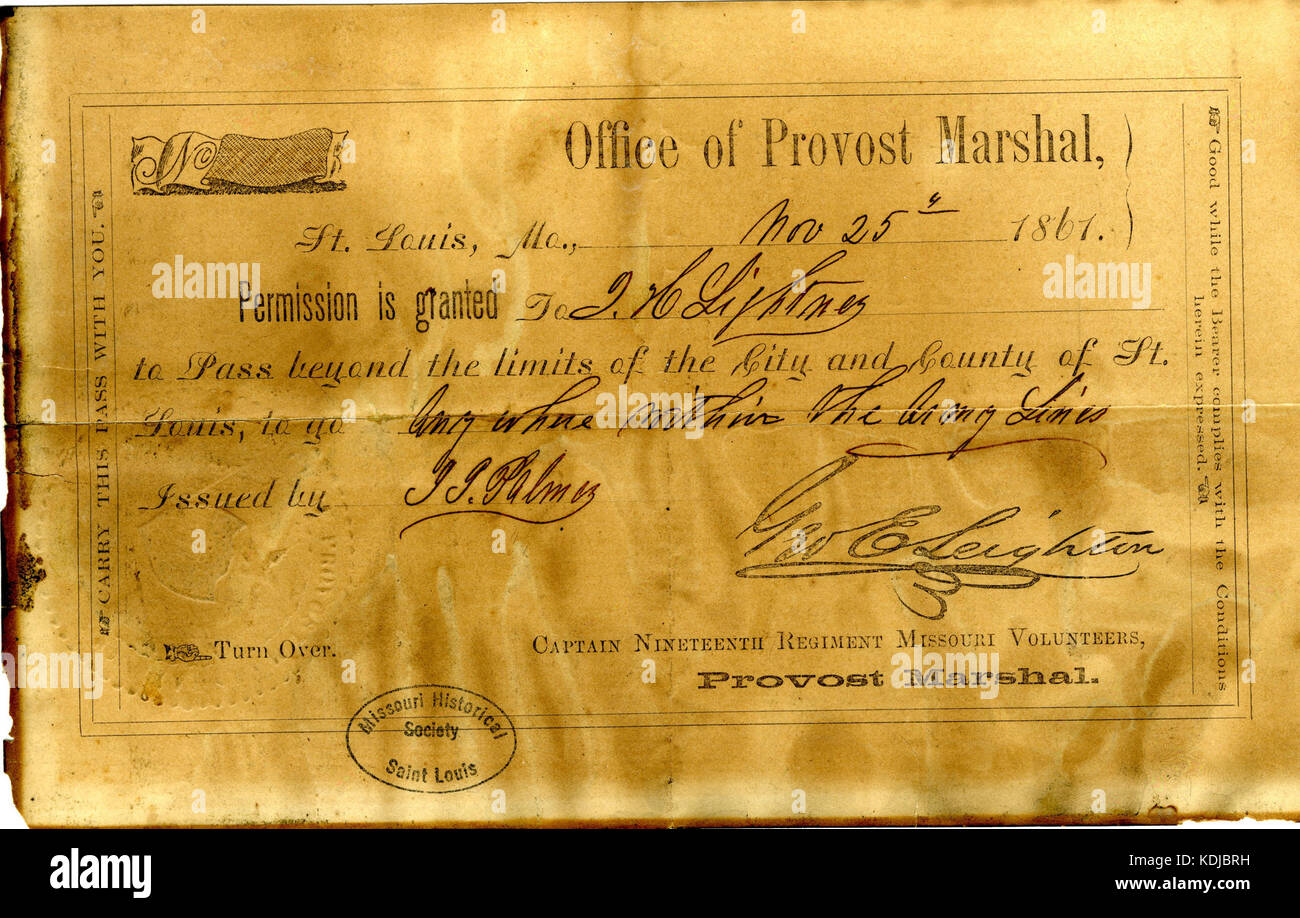 Office of Provost Marshal,
No
St. Louis, Mo., Nov 25" 1861.
Permission is granted To J. H Lightner
to Pass beyond the limits of the City and County of St.
Louis, to go Any where within the Army Lines
Issued by J. J. Palmer
Geo E Leighton
Turn Over.
CAPTAIN NINETEENTH REGIMENT MISSOURI VOLUNTEERS,
Provost Marshal.
CARRY THIS PASS WITH YOU.
Good while the Bearer complies with the Conditions
herein expressed.
Missouri Historical
Society
Saint Louis
alamy
Image ID: KDJBRH
www.alamy.com